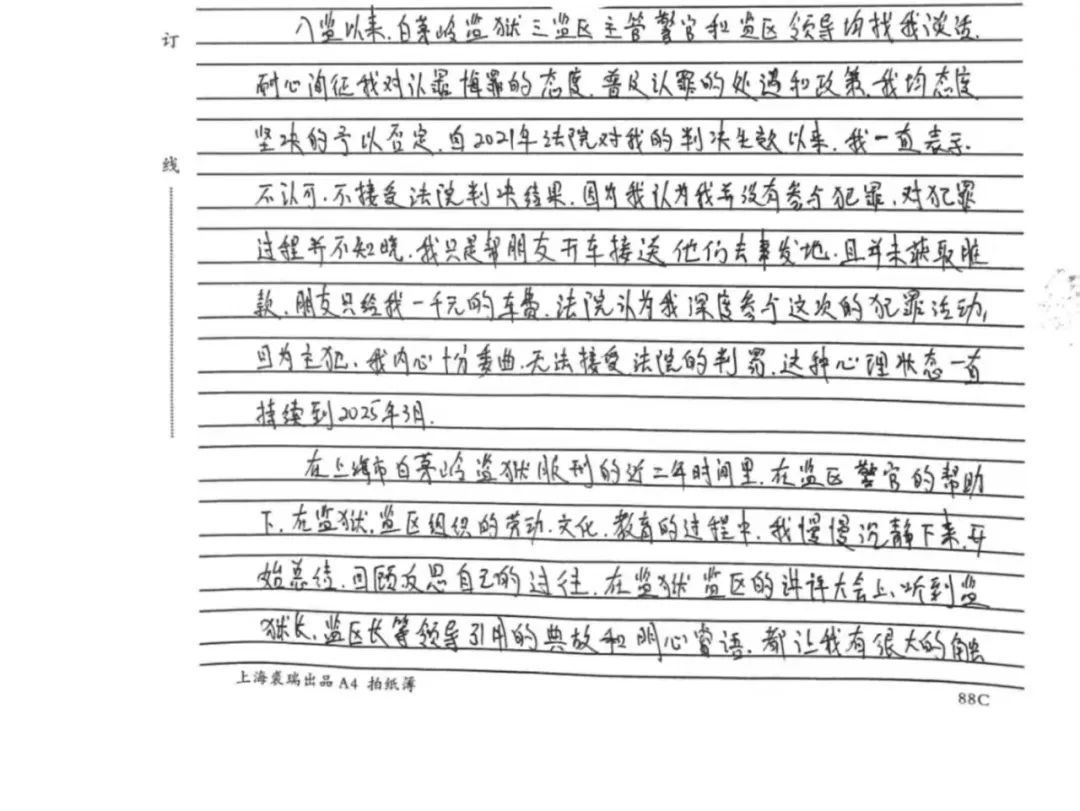 订
线
入监以来,白茅岭监狱三监区主管警官和监区领导均找我谈话,
耐心询征我对认罪悔罪的态度,普及认罪的处遇和政策,我均态度
坚决的予以否定,自2021年法院对我的判决生效以来,我一直表示
不认可,不接受法院判决结果,因为我认为我并没有参与犯罪,对犯罪
过程并不知晓,我只是帮朋友开车接送他们去事发地,且并未获取脏
款,朋友只给我一千元的车费,法院认为我深度参与这次的犯罪活动,
同为主犯,我内心十分委曲,无法接受法院的判罚,这种心理状态一直
持续到2025年3月.
在上海市白茅岭监狱服刑的近二年时间里,在监区警官的帮助
下,在监狱,监区组织的劳动、文化、教育的过程中,我慢慢沉静下来,开
始总结,回顾反思自己的过往,在监狱监区的讲评大会上,听到监
狱长、监区长等领导引用的典故和明心窗语,都让我有很大的触
上海裘瑞出品A4 拍纸薄
88C